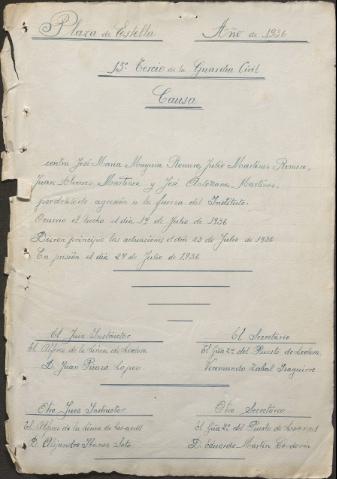 Plaza de Estella Año de 1936
13º Tercio de la Guardia Civil
Causa
contra José María Romero, Julio Martínez Romero,
Juan Martínez y José Martínez,
por delito agresión a la fuerza del Instituto.
Ocurrió el hecho el día 19 de Julio de 1936
Dieron principio las actuaciones el día 23 de Julio de 1936
En prisión el día 24 de Julio de 1936
El Juez Instructor
El Alférez de la Línea de
D. Juan López
El Secretario
El Guardia 2º del Puesto de
Veremundo Zabal Izaguirre
Otro Juez Instructor
El Alférez de la Línea de
D. Alejandro Soto
Otro Secretario
El Guardia 2º del Puesto de
D. Eduardo Martín